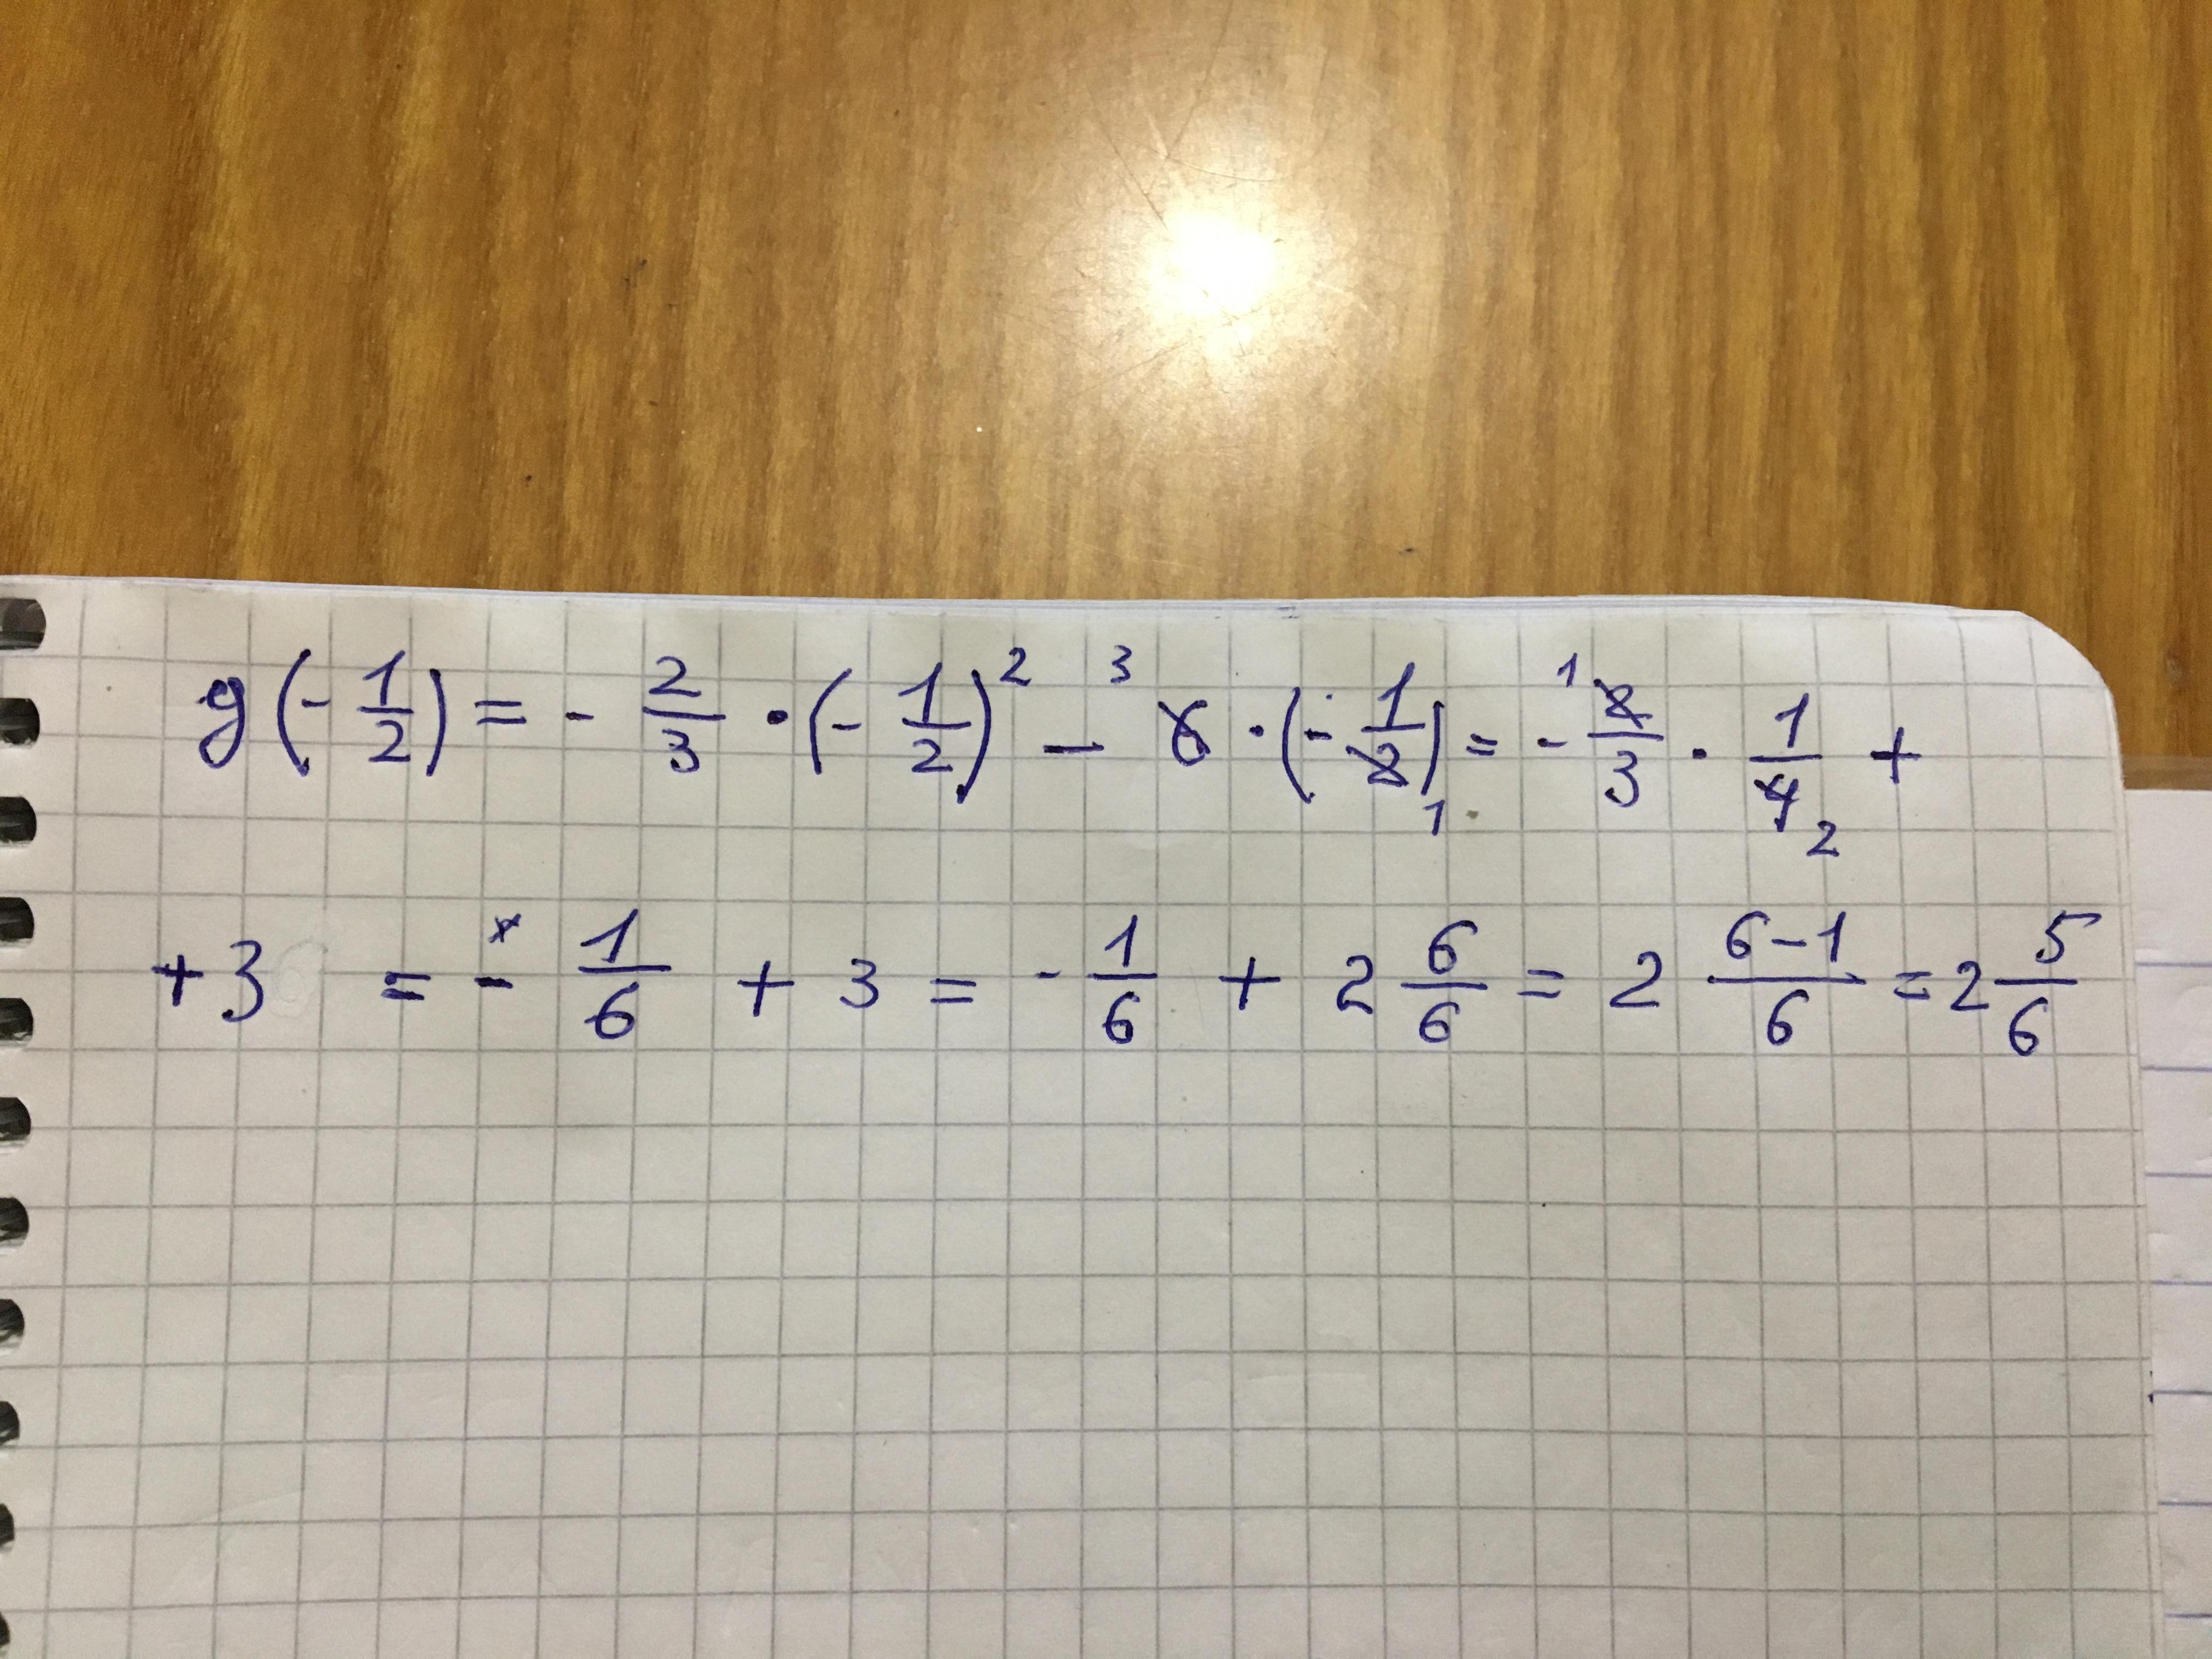 g(-1/2) = - 2/3 · (-1/2)² - 6 3 · (-1/2 1) = - 1 2/3 · 1/4 2 +
+3 = - 1/6 + 3 = - 1/6 + 2 6/6 = 2 6-1/6 = 2 5/6